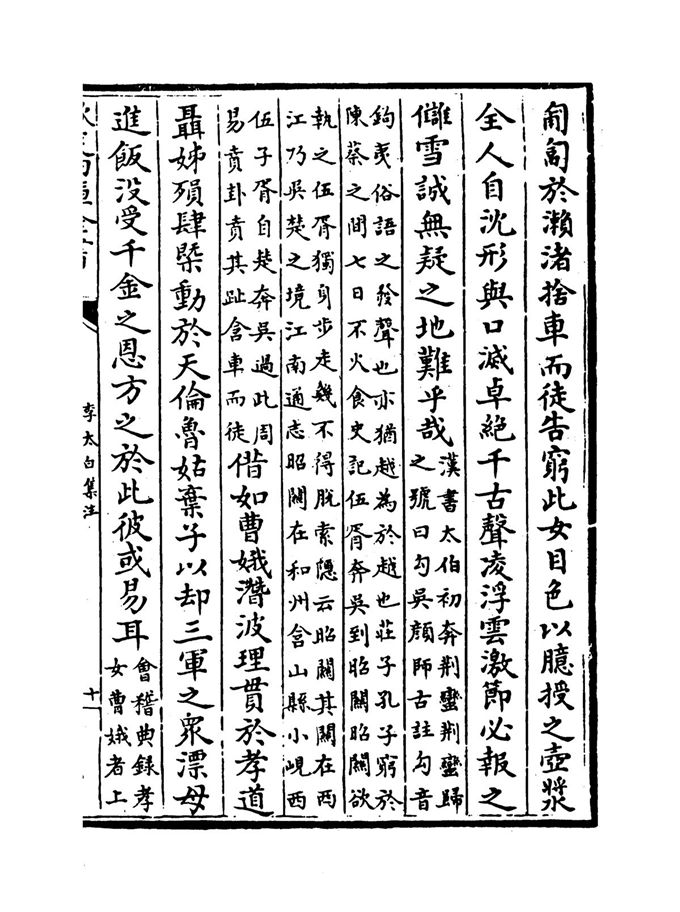 匍匐於瀨渚捨車而徒告窮此女目色以臆授之壺漿
全人自沈形與口滅卓絶千古聲凌浮雲激節必報之
讎雪誠無疑之地難乎哉
漢書太伯初奔荆蠻荆蠻歸
之號曰勾吳顔師古註勾音
鉤夷俗語之發聲也亦猶越為於越也莊子孔子窮於
陳蔡之間七日不火食史記伍胥奔吳到昭關昭關欲
執之伍胥獨身步走幾不得脫索隱云昭關其關在西
江乃吳楚之境江南通志昭關在和州含山縣小峴西
伍子胥自楚奔吳過此周
易賁卦賁其趾舍車而徒
偕如曹娥潛波理貫於孝道
聶姊殞肆槩動於天倫魯姑棄子以却三軍之眾漂母
進飯没受千金之恩方之於此彼或易耳
會稽典錄孝
女曹娥者上
李太白集注